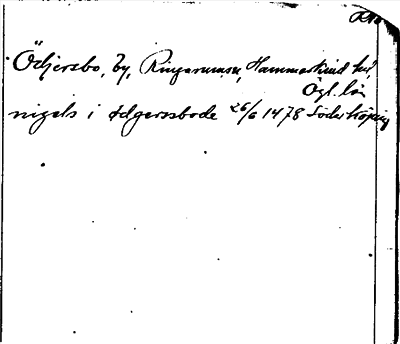 Ödjersbo, by, Ringarums sn, Hammarkind hd,
Ögl. län
nigels i ødgerssbode 26/6 1478 Söderköping